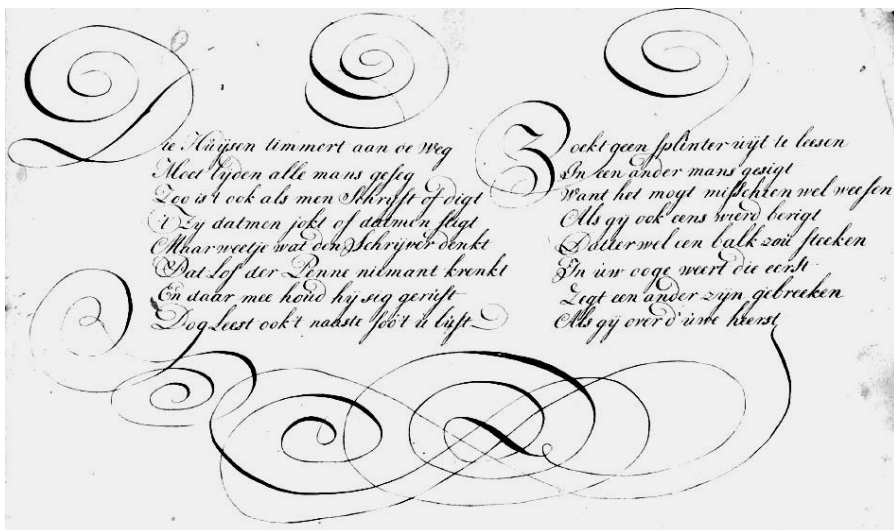 Die Huÿsen timmert aan de Weg
Moet lÿden alle mans geseg
Zoo is't ook als men Schrÿft of digt
't Zy datmen jokt of datmen stigt
Maar weetje wat den Schrijver denkt
Dat Lof der Penne niemant krenkt
En daar mee houd hÿ sig gerieft
Dog Leest ook't naaste soo't u lieft
Zoekt geen splinter uÿt te leesen
In een ander mans gesigt
Want het mogt misschien wel weesen
Als gÿ ook eens wierd berigt
Datter wel een balk zoú steeken
In úw ooge weert die eerst
Zegt een ander zÿn gebreeken
Als gÿ over d'úwe heerst